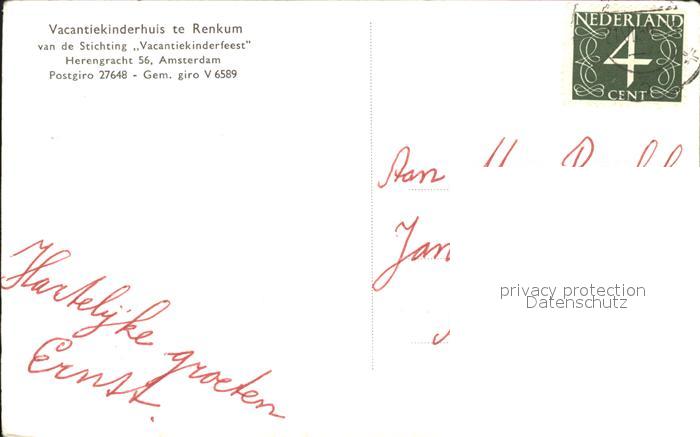 Vacantiekinderhuis te Renkum
van de Stichting „Vacantiekinderfeest"
Herengracht 56, Amsterdam
Postgiro 27648 - Gem. giro V 6589
NEDERLAND
4
CENT
Aan
Jan
privacy protection
Datenschutz
Hartelijke groeten
Ernst.